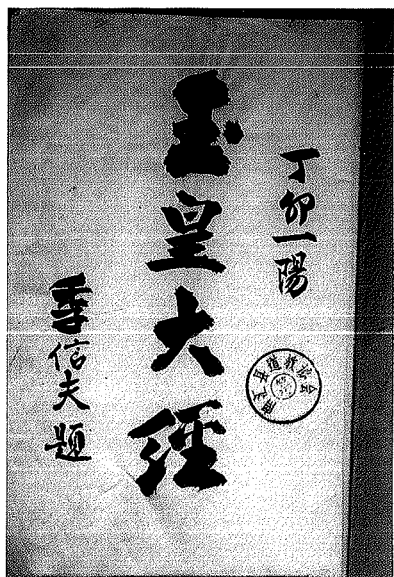 丁卯一陽
玉皇大經
季信夫題
县道教协会